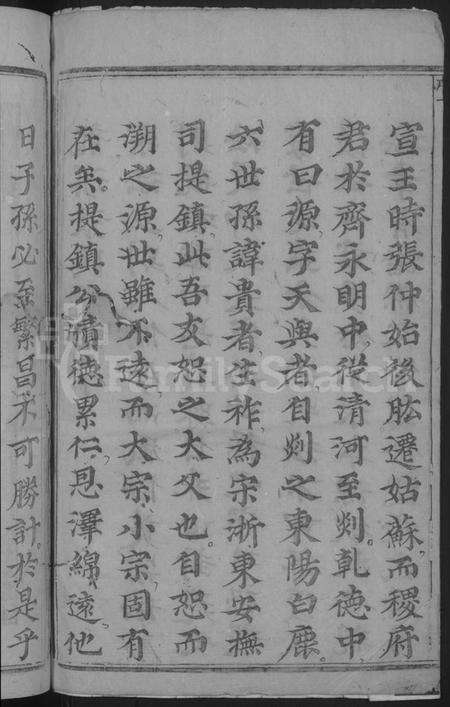 宣王時張仲始後肱遷姑蘇而稷府
君於齊永明中從清河至剡乾德中
有曰源字天與者自剡之東陽白鹿
六世孫諱貴者生祚為宋浙東安撫
司提鎮此吾友恕之大父也自恕而
溯之源世雖不遠而大宗小宗固有
在矣提鎮公肅德累仁恩澤綿遠他
日子孫必至繁昌不可勝計於是乎
FamilySearch